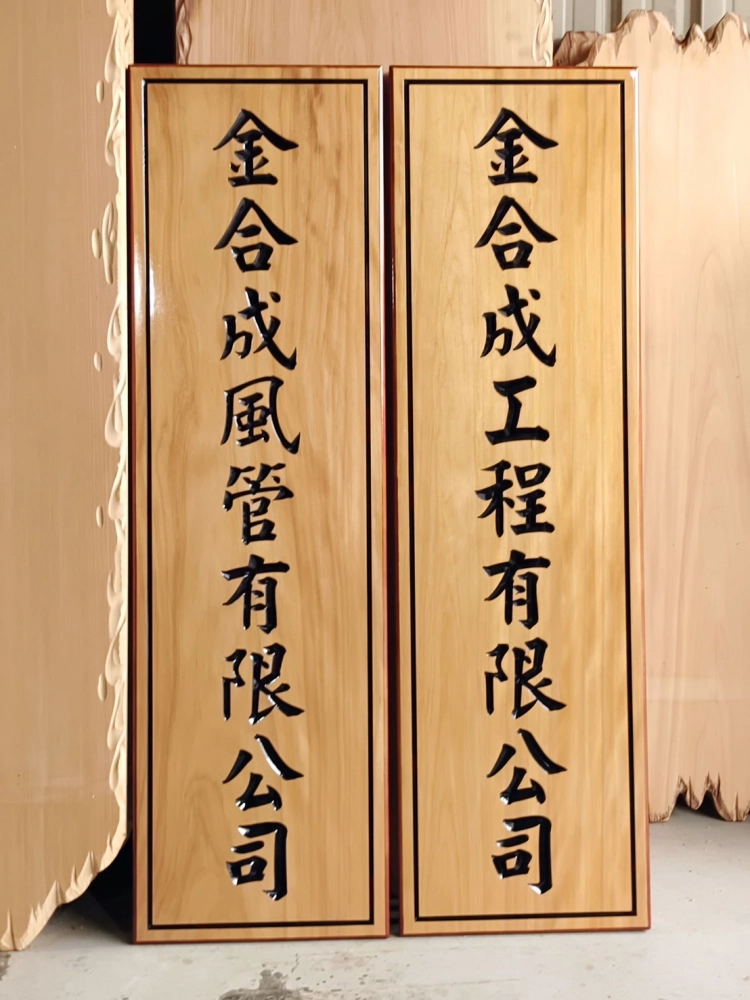 金合成工程有限公司
金合成風管有限公司